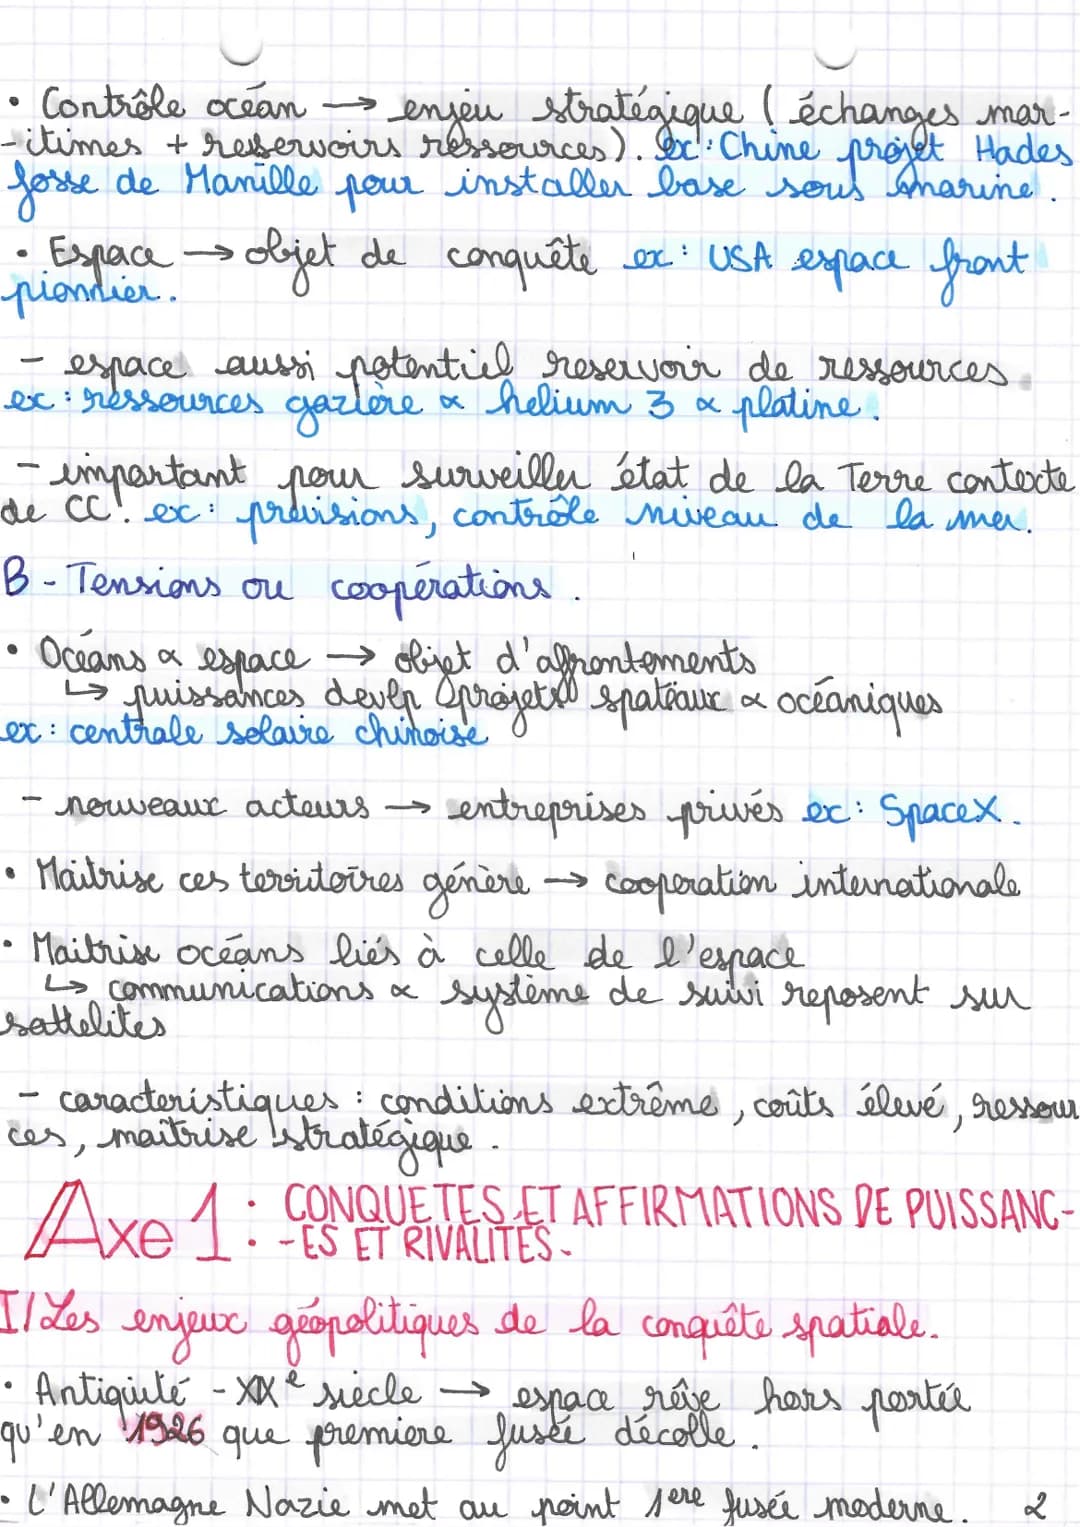 • Contrôle océan → enjeu stratégique ( échanges mar-
-itimes + reservoirs ressources). ex : Chine projet Hades
fosse de Manille pour installer base sous marine.
• Espace → objet de conquête ex : USA espace front
pionnier.
- espace aussi potentiel reservoir de ressources.
ex : ressources gazière & helium 3 & platine.
- important pour surveiller état de la Terre contexte
de CC. ex : prévisions, contrôle niveau de la mer.
B - Tensions ou coopérations.
• Océans & espace → objet d'affrontements
↳ puissances devlp projets spatiaux & océaniques
ex : centrale solaire chinoise
- nouveaux acteurs → entreprises privés ex : SpaceX.
• Maitrise ces territoires génère → cooperation internationale
• Maitrise océans liés à celle de l'espace
↳ communications & système de suivi reposent sur
sattelites
- caracteristiques : conditions extrême, coûts élevé, ressour
ces, maîtrise stratégique.
Axe 1 : CONQUETES ET AFFIRMATIONS DE PUISSANC-
-ES ET RIVALITÉS.
I/ Les enjeux géopolitiques de la conquête spatiale.
• Antiquité - XIXe siècle → espace rêve hors portée
qu'en 1926 que premiere fusée décolle.
• L'Allemagne Nazie met au point 1ere fusée moderne. 2